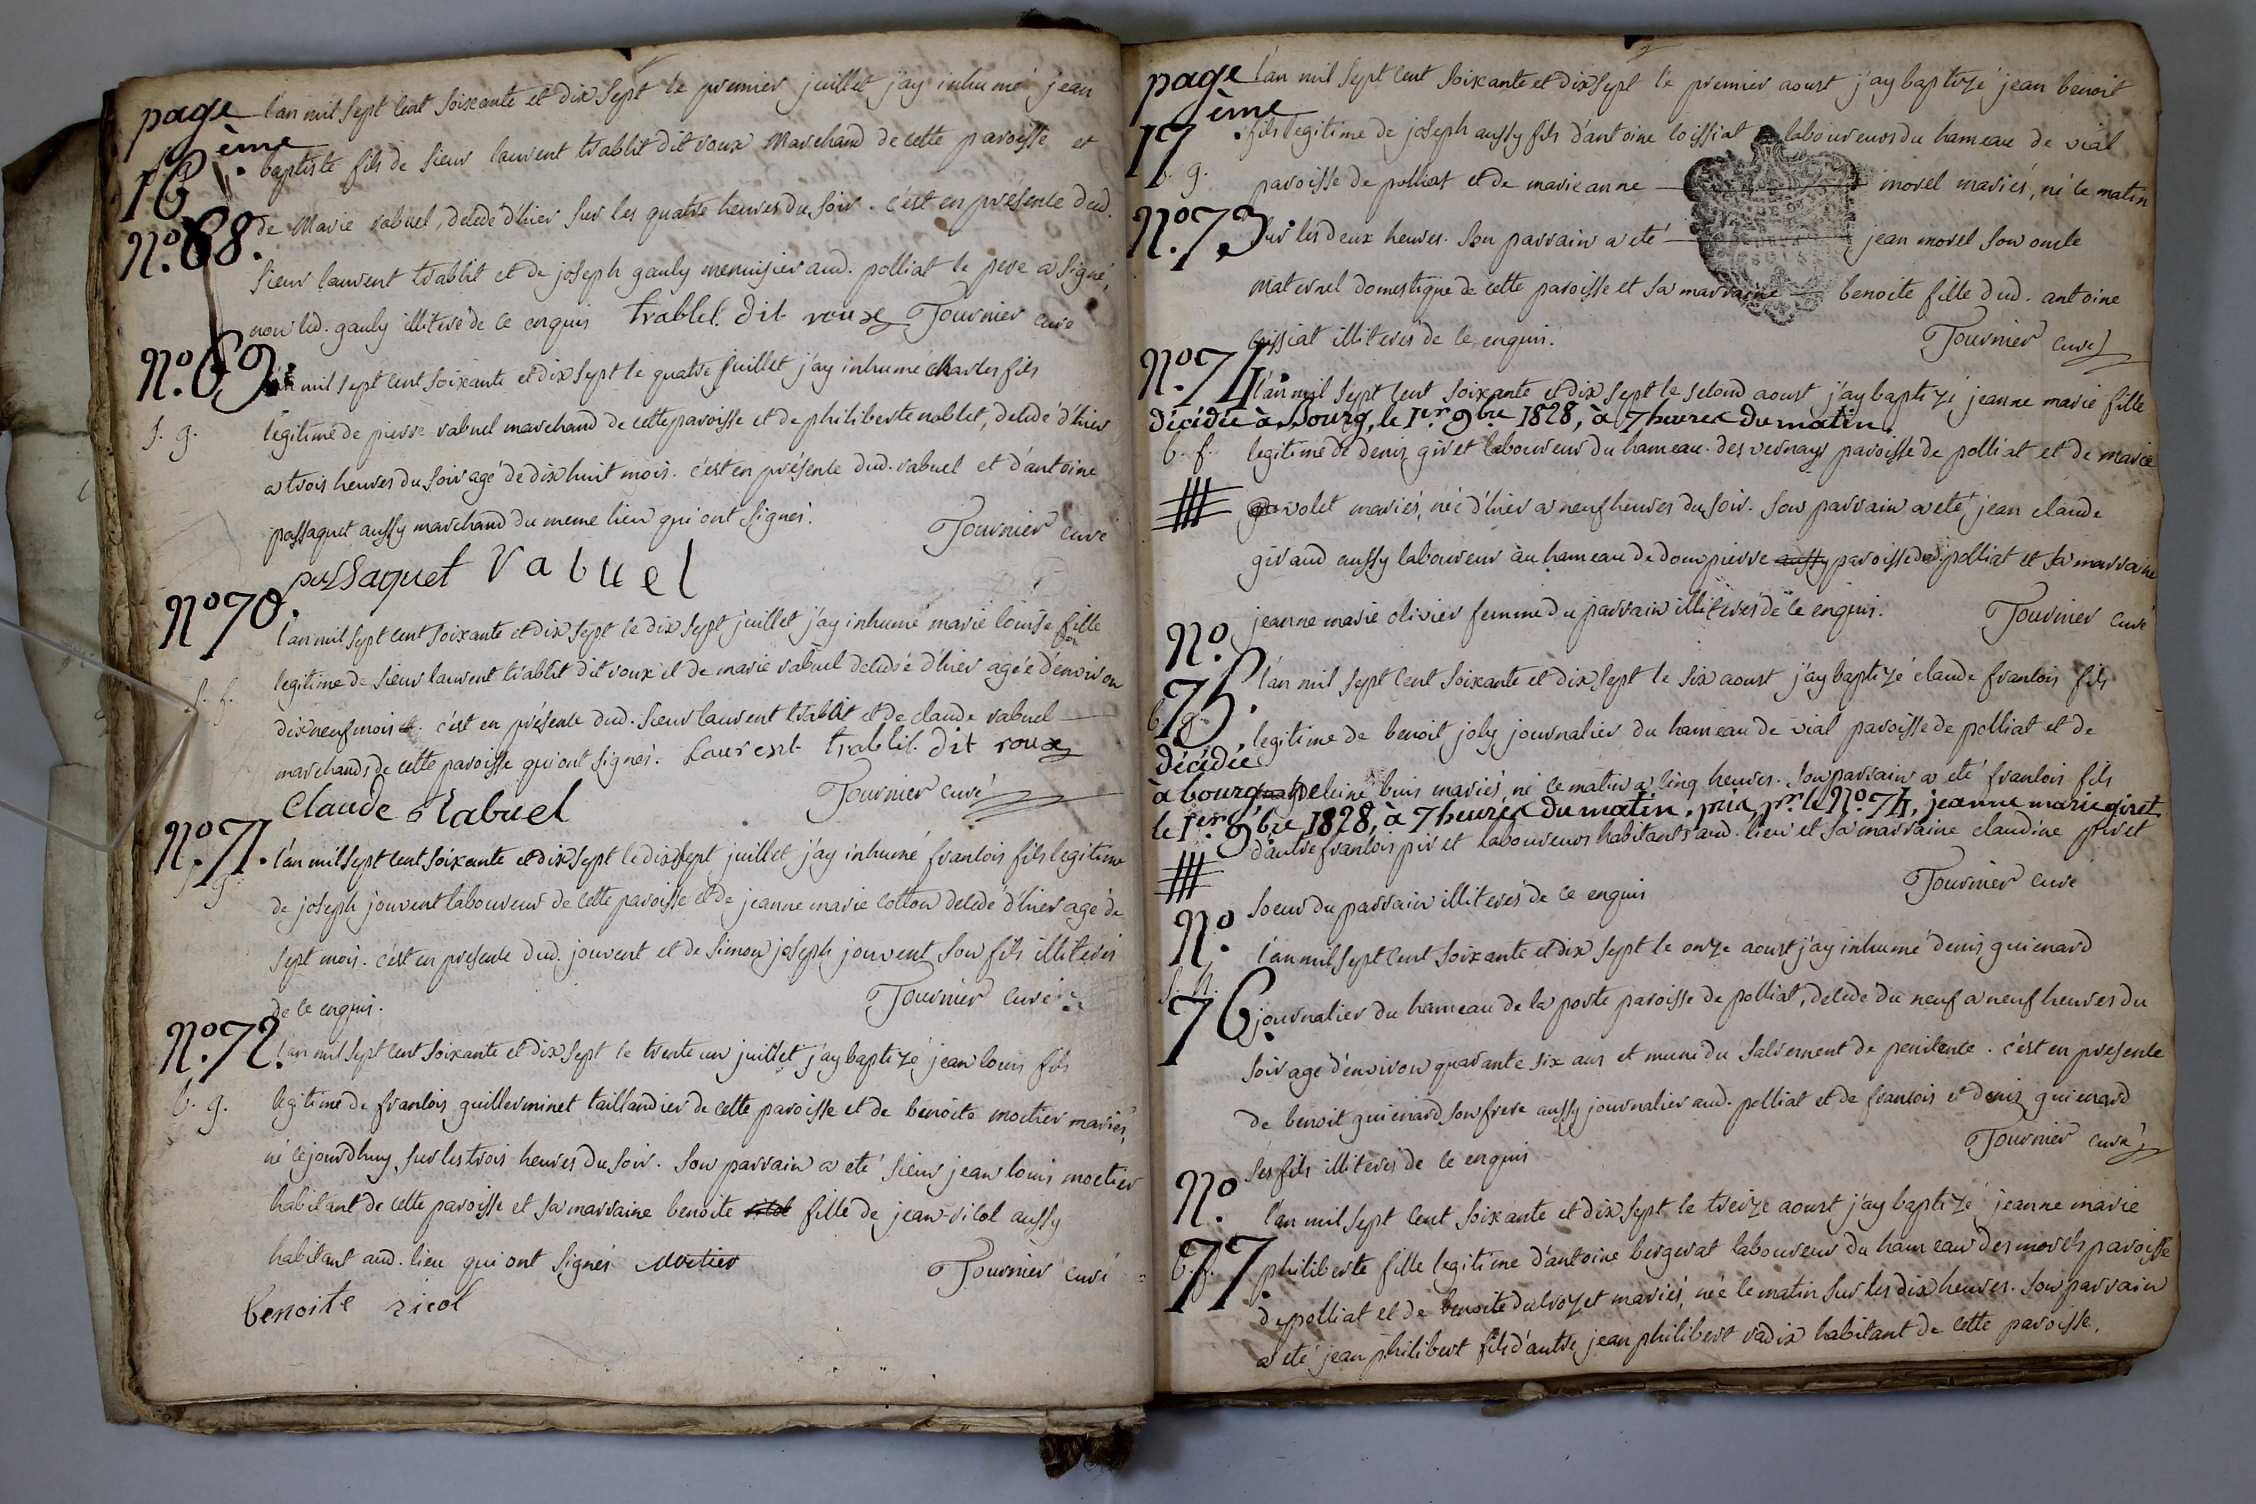 page 16ème
N.º 68.
l'an mil sept cent soixante et dix sept le premier juillet j'ay inhumé jean
baptiste fils de sieur laurent trablit dit roux marchand de cette paroisse et
de Marie rabuel, decedé d'hier sur les quatre heures du soir. c'est en présence dud.
sieur laurent trablit et de joseph gauly menuisier aud. polliat le pere a signé,
non led. gauly illiteré de ce enquis trablit dit roux Tournier curé
N.º 69.
l'an mil sept cent soixante et dix sept le quatre juillet j'ay inhumé charles fils
s. g.
legitime de pierre rabuel marchand de cette paroisse et de philiberte noblet, decedé d'hier
a trois heures du soir agé de dix huit mois. c'est en présence dud. rabuel et d'antoine
passaquet aussy marchand du meme lieu qui ont signés.
Tournier curé
passaquet Rabuel
Nº 70.
l'an mil sept cent soixante et dix sept le dix sept juillet j'ay inhumé marie louise fille
s. f.
legitime de sieur laurent trablit dit roux et de marie rabuel decedée d'hier agée d'environ
dix neuf mois. c'est en présence dud. sieur laurent trablit et de claude rabuel
marchands de cette paroisse qui ont signés. Laurent trablit dit roux
Claude Rabuel Tournier curé
Nº. 71.
l'an mil sept cent soixante et dix sept le dix sept juillet j'ay inhumé francois fils legitime
s. g.
de joseph jouvent laboureur de cette paroisse et de jeanne marie cotton decedé d'hier agé de
sept mois. c'est en presence dud. jouvent et de simon joseph jouvent son fils illiterés
de ce enquis. Tournier curé
Nº. 72.
l'an mil sept cent soixante et dix sept le trente un juillet j'ay baptizé jean louis fils
b. g.
legitime de francois guillerminet taillandier de cette paroisse et de benoite moetier mariés,
né ce jourdhuy sur les trois heures du soir. Son parrain a eté sieur jean louis moetier
habitant de cette paroisse et sa marraine benoite ricol fille de jean ricol aussy
habitant aud. lieu qui ont signés Moetier
Tournier curé
benoite ricol
page 17ème
l'an mil sept cent soixante et dix sept le premier aoust j'ay baptizé jean benoit
fils legitime de joseph aussy fils d'antoine loissiat laboureurs du hameau de vial
b. g.
paroisse de polliat et de marie anne morel mariés, né ce matin
Nº. 73
sur les deux heures. Son parrain a eté jean morel son oncle
maternel domestique de cette paroisse et sa marraine benoite fille dud. antoine
loissiat illiterés de ce enquis. Tournier curé
Nº. 74.
l'an mil sept cent soixante et dix sept le second aoust j'ay baptizé jeanne marie fille
décédée à Bourg, le 1er 9bre 1828, à 7 heures du matin.
b. f.
legitime de denis giret laboureur du hameau des vernays paroisse de polliat et de marie
garolet mariés, née d'hier a neuf heures du soir. Son parrain a eté jean claude
giraud aussy laboureur au hameau de dompierre aussy paroisse dud. polliat et sa marraine
jeanne marie olivier femme du parrain illiterés de ce enquis. Tournier curé
Nº. 75.
l'an mil sept cent soixante et dix sept le six aoust j'ay baptizé claude francois fils
b. g.
legitime de benoit joly journalier du hameau de vial paroisse de polliat et de
décédée
à bourg
buis mariés, né ce matin a cinq heures. Son parrain a eté francois fils
le 1er 9bre 1828, à 7 heures du matin, pris pr. le Nº. 74, jeanne marie giret
d'autre francois piret laboureurs habitants aud. lieu et sa marraine claudine piret
soeur du parrain illiterés de ce enquis Tournier curé
Nº. 76.
l'an mil sept cent soixante et dix sept le onze aoust j'ay inhumé denis guienard
s. h.
journalier du hameau de la porte paroisse de polliat, decedé du neuf a neuf heures du
soir agé d'environ quarante six ans et muni du sacrement de penitence. c'est en presence
de benoit guienard son frere aussy journalier aud. polliat et de francois et denis guienard
ses fils illiterés de ce enquis Tournier curé
Nº. 77.
l'an mil sept cent soixante et dix sept le treize aoust j'ay baptizé jeanne marie
b. f.
philiberte fille legitime d'antoine bergerat laboureur du hameau des morels paroisse
de polliat et de benoite mariés, née ce matin sur les dix heures. Son parrain
a eté jean philibert fils d'autre jean philibert radix habitant de cette paroisse,